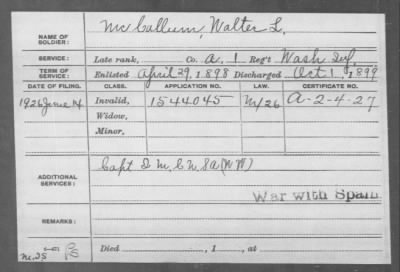 NAME OF SOLDIER: McCallum, Walter L.
SERVICE: Late rank, Co. A, 1 Reg't Wash Inf,
TERM OF SERVICE: Enlisted April 29, 1898 Discharged Oct 1, 1899
DATE OF FILING. CLASS. APPLICATION NO. LAW. CERTIFICATE NO.
1926 June 14 Invalid, 1544045 A-2-4-27
Widow,
Minor,
ADDITIONAL SERVICES: Capt Q M, C N, S A (W W)
War with Spain.
REMARKS:
Died , 1 , at